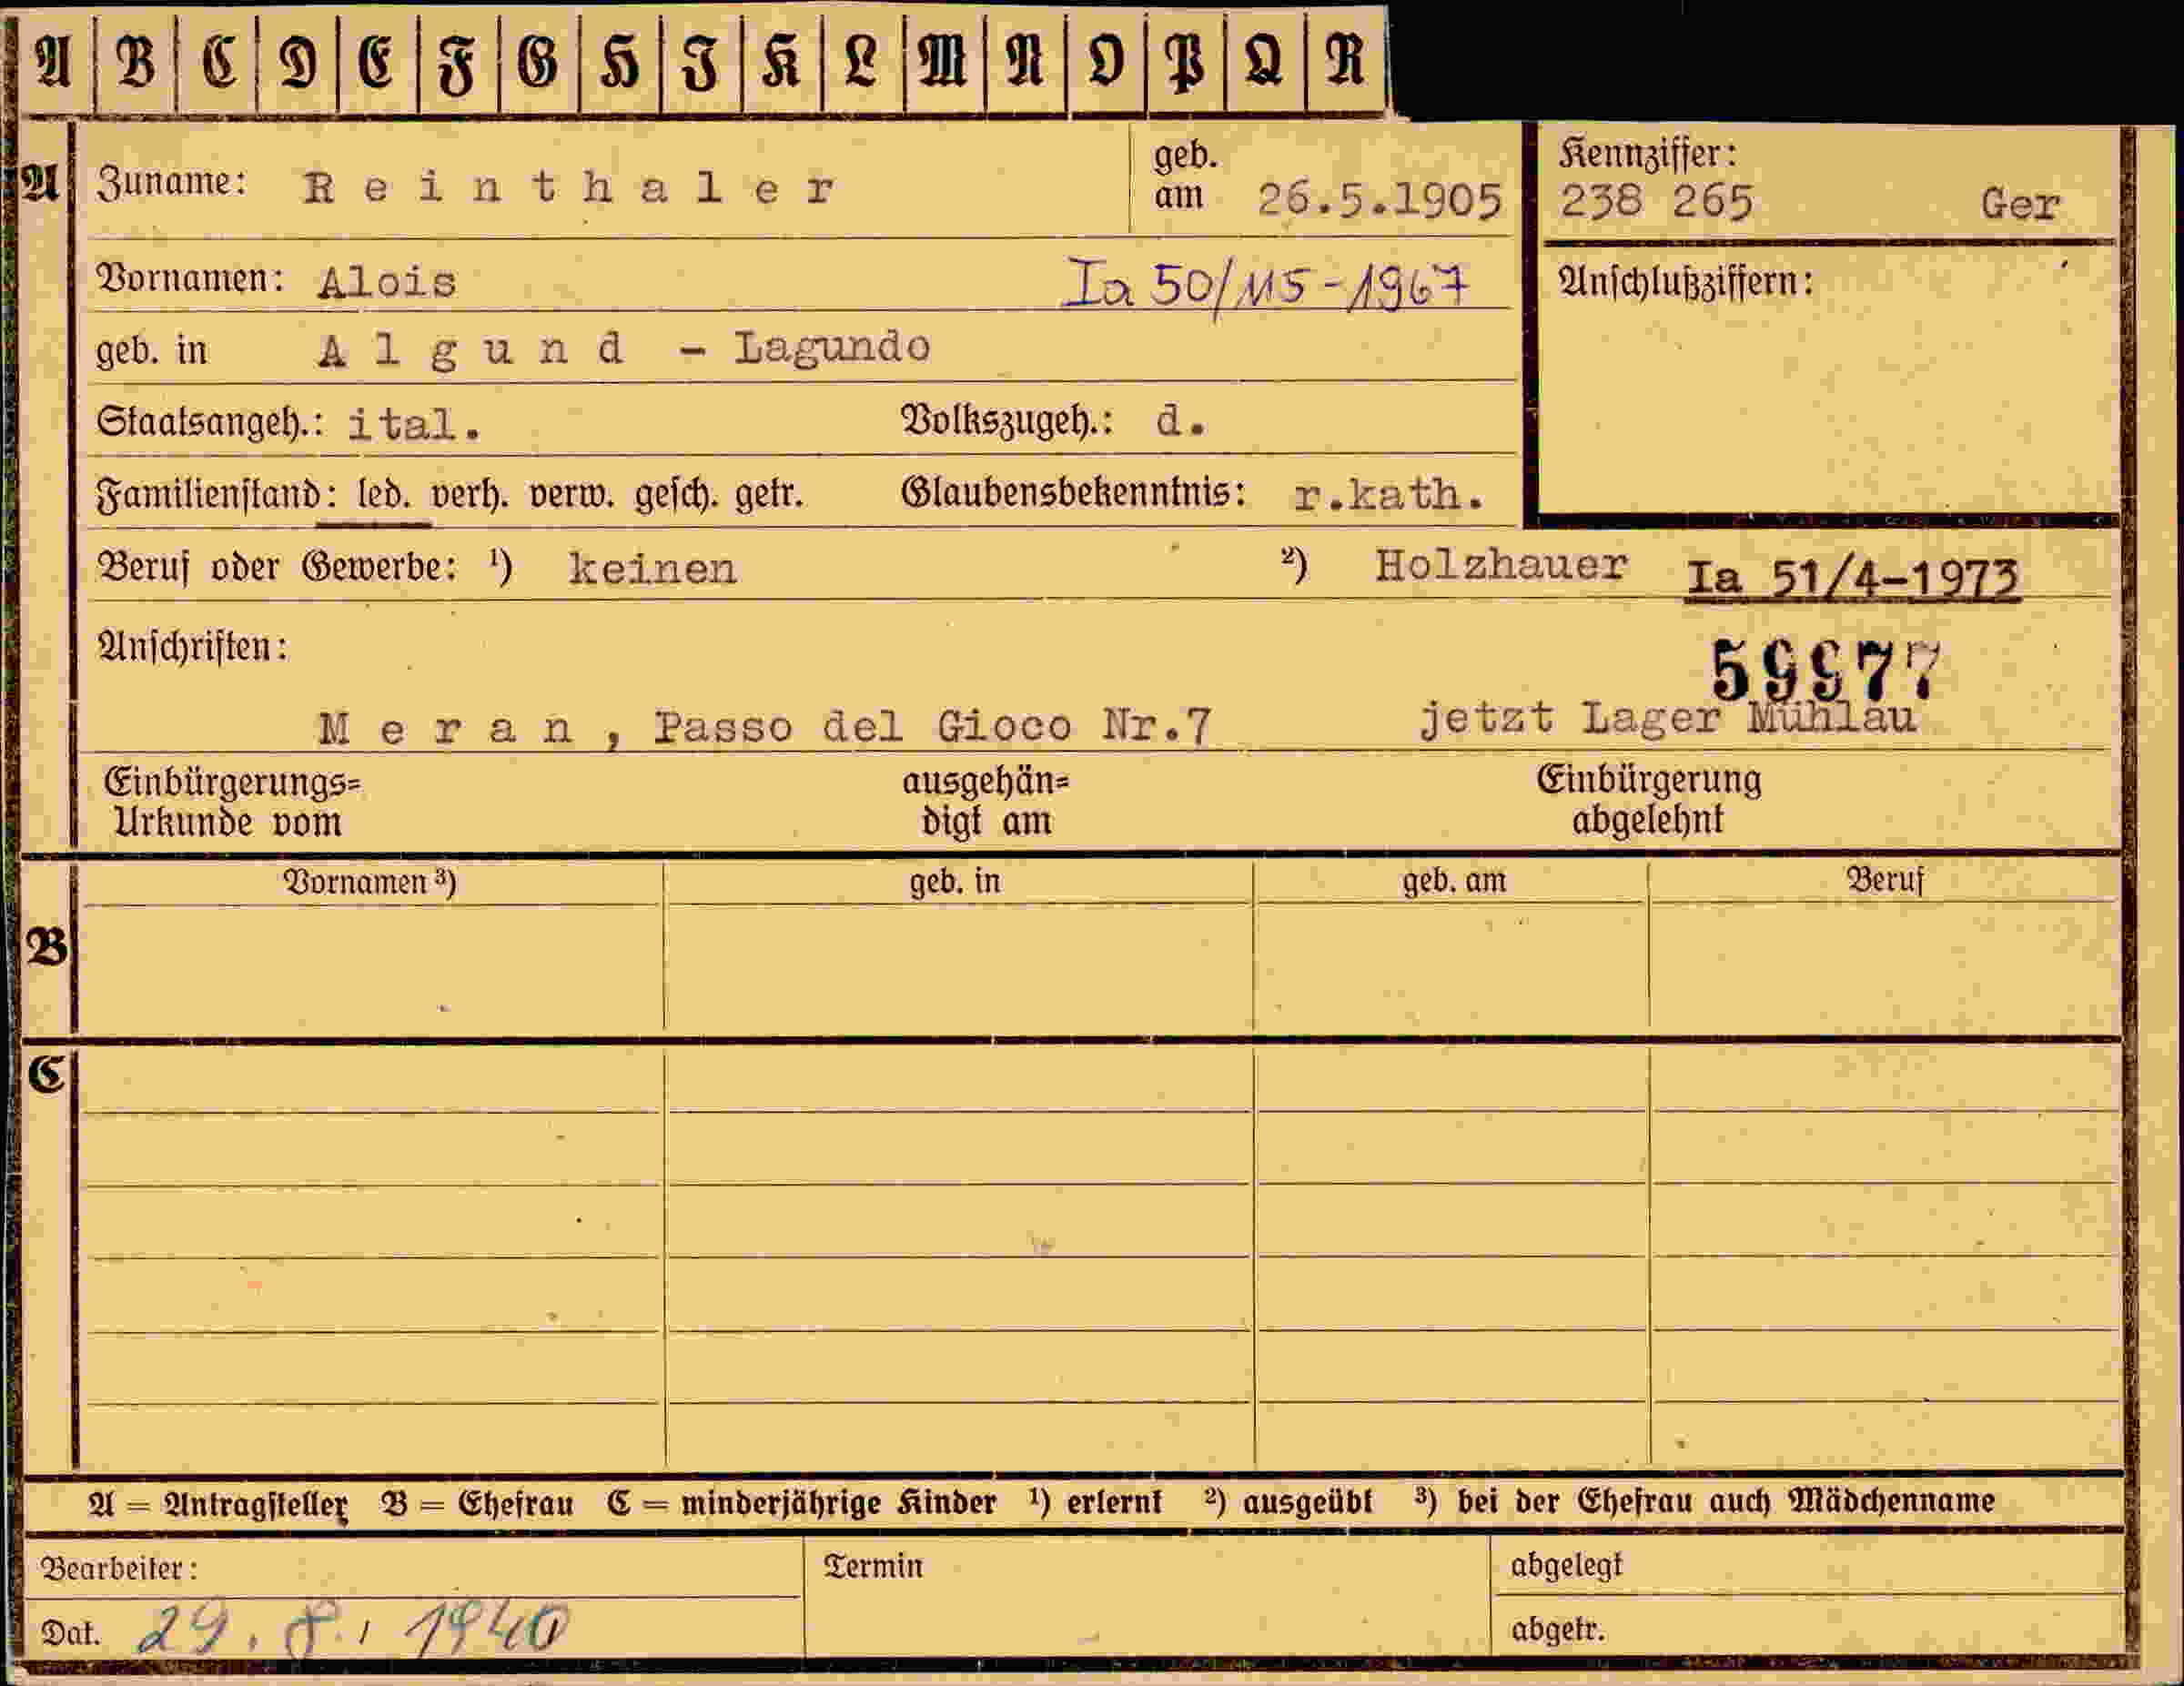 A B C D E F G H I K L M N O P Q R
A Zuname: Reinthaler geb. am 26.5.1905
Kennziffer:
238 265 Ger
Vornamen: Alois Ia 50/115-1967
Anschlußziffern:
geb. in Algund - Lagundo
Staatsangeh.: ital. Volkszugeh.: d.
Familienstand: led. verh. verw. gesch. getr. Glaubensbekenntnis: r.kath.
Beruf oder Gewerbe: ¹) keinen ²) Holzhauer Ia 51/4-1973
Anschriften:
59977
Meran, Passo del Gioco Nr.7 jetzt Lager Mühlau
Einbürgerungs= ausgehän= Einbürgerung
Urkunde vom digt am abgelehnt
Vornamen ³) geb. in geb. am Beruf
B
C
A = Antragsteller B = Ehefrau C = minderjährige Kinder ¹) erlernt ²) ausgeübt ³) bei der Ehefrau auch Mädchenname
Bearbeiter: Termin abgelegt
Dat. 29. 8. 1940 abgetr.